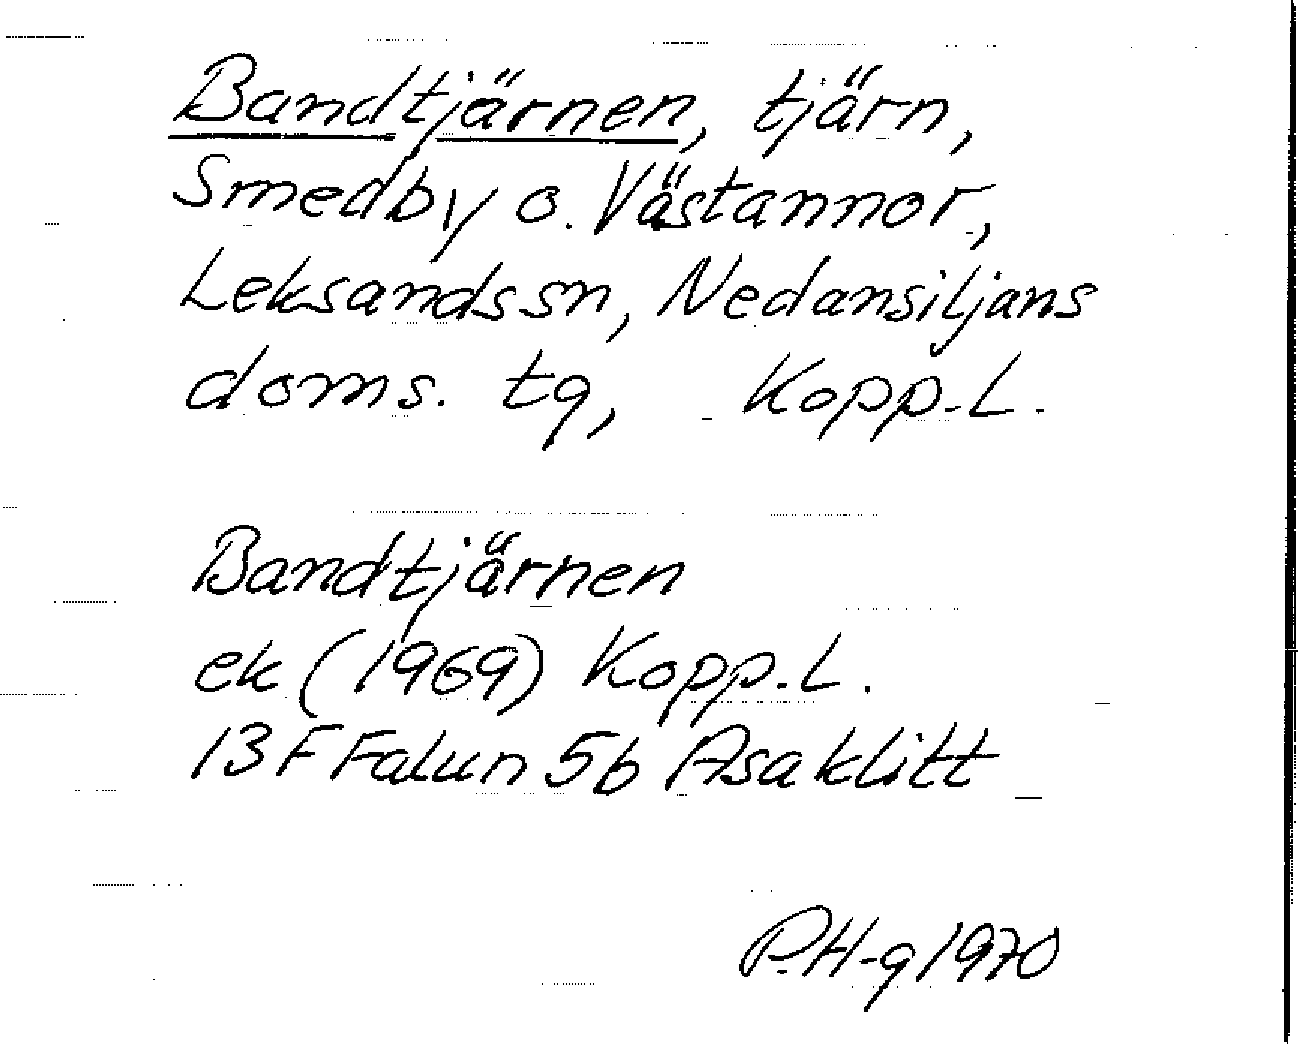 Bandtjärnen, tjärn,
Smedby o. Västannor,
Leksands sn, Nedansiljans
doms. tg, Kopp. L.
Bandtjärnen
ek (1969) Kopp. L.
13F Falun 5b Asaklitt
P.H-g 1970